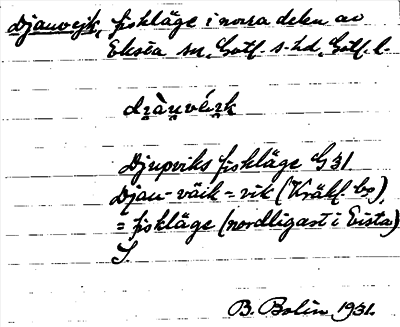 Djauvejk, fiskläge i norra delen av
Eksta sn, Gotl. s. hd, Gotl. l.
Djupviks fiskläge G 31.
Djau-väik = vik (Kräkl. bs),
= fiskläge (nordligast i Eksta)
S.
B. Bolin 1931.